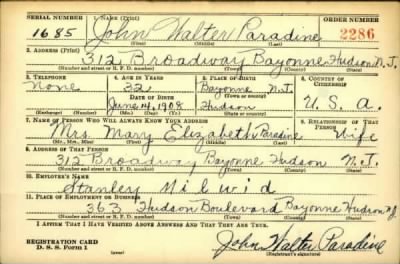 SERIAL NUMBER 1. NAME (Print) ORDER NUMBER
1685 John Walter Paradine 2286
(First) (Middle) (Last)
2. ADDRESS (Print)
312 Broadway Bayonne Hudson N.J.
(Number and street or R. F. D. number) (Town) (County) (State)
3. TELEPHONE 4. AGE IN YEARS 5. PLACE OF BIRTH 6. COUNTRY OF CITIZENSHIP
None 32 Bayonne N.J.
DATE OF BIRTH (Town or county)
June 14, 1908 Hudson U.S.A.
(Mo.) (Day) (Yr.) (State or country)
7. NAME OF PERSON WHO WILL ALWAYS KNOW YOUR ADDRESS 8. RELATIONSHIP OF THAT PERSON
Mrs. Mary Elizabeth Paradine Wife
(Mr., Mrs., Miss) (First) (Middle) (Last)
9. ADDRESS OF THAT PERSON
312 Broadway Bayonne Hudson N.J.
(Number and street or R. F. D. number) (Town) (County) (State)
10. EMPLOYER'S NAME
Stanley Milwid
11. PLACE OF EMPLOYMENT OR BUSINESS
363 Hudson Boulevard Bayonne Hudson N.J.
(Number and street or R. F. D. number) (Town) (County) (State)
I AFFIRM THAT I HAVE VERIFIED ABOVE ANSWERS AND THAT THEY ARE TRUE.
REGISTRATION CARD
D. S. S. Form 1 John Walter Paradine
(Registrant's signature)